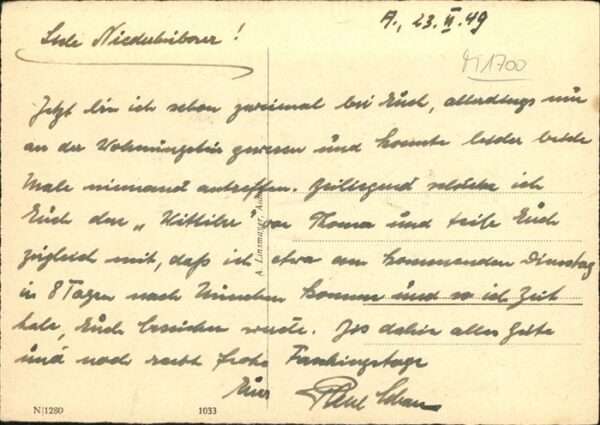 A., 23.II.49
Liebe Niederbiborer!
M1700
Jetzt bin ich schon zweimal bei Euch, allerdings nur
an der Wohnungstür gewesen und konnte leider beide
Male niemand antreffen. Beiliegend schicke ich
Euch den „ von Thoma und teile Euch
zugleich mit, daß ich etwa am kommenden Dienstag
in 8 Tagen nach München komme und so ich Zeit
habe, Euch besuchen werde. Bis dahin alles Gute
und noch recht frohe Faschingstage
Euer
A. Linsmayer,
N/1280 1033